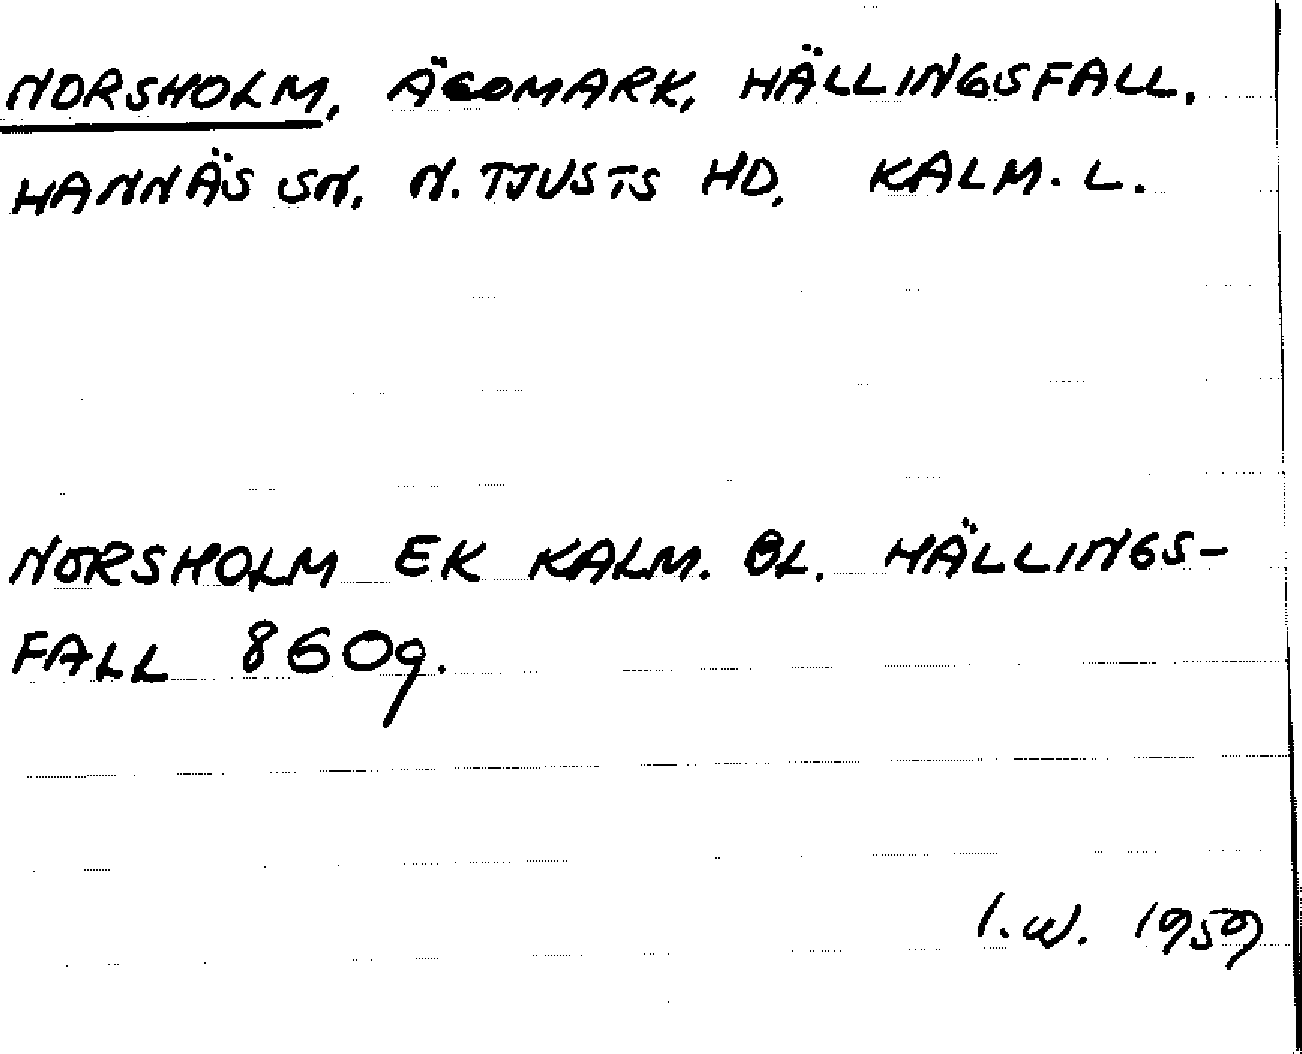 NORSHOLM, ÄGOMARK, HÄLLINGSFALL.
HANNÄS SN. N. TJUSTS HD. KALM. L.
NORSHOLM EK KALM. BL. HÄLLINGS-
FALL 8609.
I.W. 1959